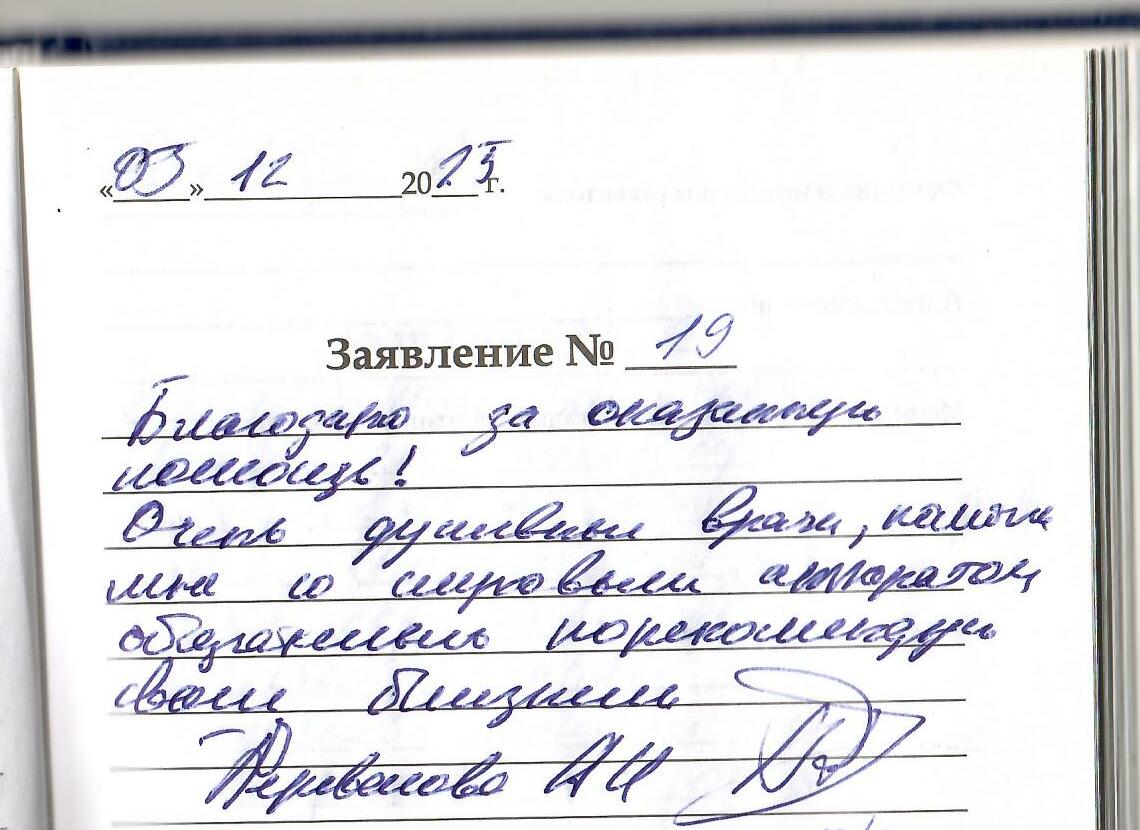 «03» 12 2025 г.
Заявление № 19
Благодарю за оказанную
помощь!
Очень душевные врачи, помогли
мне со слуховым аппаратом,
обязательно порекомендую
своим близким